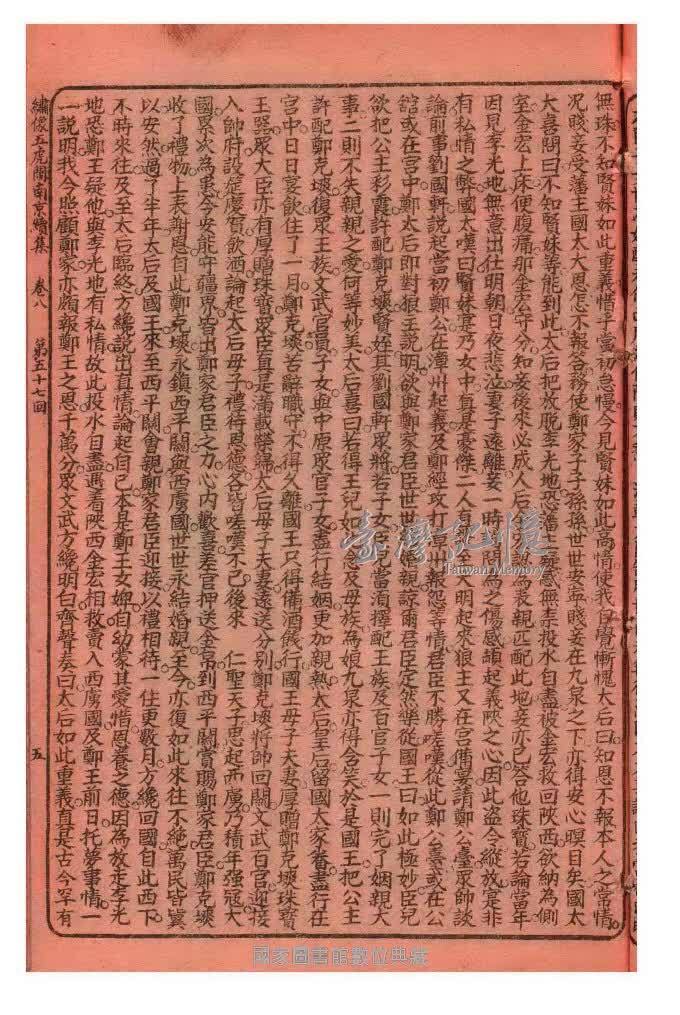 無珠不知賢妹如此重義惜乎當初怠慢今見賢妹如此高情使我自覺慚愧太后曰知恩不報本人之常情
况賤妾受藩王國太大恩怎不報答務使鄭家子子孫孫世世安寧賤妾在九泉之下亦得安心暝目矣國太
大喜問曰不知賢妹等能到此太后把放脫李光地恐藩主疑惑無柰投水自盡被金宏救回陝西欲納為側
室金宏上床便腹痛那金宏守分知妾後來必成人后認為表親匹配此地妾亦已答他珠寶若論當年
因見李光地無意出仕明朝日夜悲泣妻子遠離妾一時聞為之傷感頓起義俠之心因此盜令縱放實是非
有私情之弊國太嘆曰賢妹是乃女中真是豪傑二人自明起來狼主又在宮備宴請鄭公臺眾師談
論前事劉國軒說起當初鄭公在漳州起義及鄭經攻打漳州報怨等情君臣不勝嗟嘆從此鄭公臺或在公
舘或在宮中鄭太后即對狼主說明欲與鄭家君臣世世偕親諒爾君臣定然樂從國王曰如此極妙臣兒
欲把公主彩霞許配鄭克塽賢姪其劉國軒眾將若子女已當須擇配王族及百官子女一則完了姻親大
事二則不失親親之愛何等妙美太后喜曰若得王兒如此念及母族為娘九泉亦得含笑於是國王把公主
許配鄭克塽復眾王族文武官濆子女與中原眾官子女盡行結姻更加親熱太后皇后留國太家眷盡行在
宮中日日宴飲住了一月鄭克塽苦辭職守不得久離國王只得備酒餞行國王母子夫妻厚贈鄭克塽珠寶
王器眾大臣亦有厚贈珠寶眾臣真是滿載榮歸太后母子夫妻遠送分別鄭克塽將帥回關文武百官迎接
入帥府設筵慶賀飲酒論起太后母子禮待恩德各皆嗟嘆不已後來 仁聖天子思起西虜乃積年強寇大
國累次為患今安能守疆界皆出鄭家君臣之力心內歡喜差官押送金帛到西平關賞賜鄭家君臣鄭克塽
收了禮物上表謝恩自此鄭克塽永鎮西平關與西虜國世世永結婚親至今亦復如此來往不絕萬民皆冀
以安然過了半年太后及國王來至西平關會親鄭家君臣迎接以禮相待一住更數月方纔回國自此西下
不時來往及至太后臨終方纔說出真情論起自己本是鄭王女婢自幼蒙其愛惜恩養之德因為放走李光
地恐鄭王疑他與李光地有私情故此投水自盡遇着陝西金宏相救賣入西虜國及鄭王前日托夢事情一
一說明我今照顧鄭家亦頗報鄭王之恩千萬分眾文武方纔明白齊聲奏曰太后如此重義真是古今罕有
繡像五虎鬧南京續集 卷八 第五十七回 五
臺灣記憶
Taiwan Memory
國家圖書館數位典藏